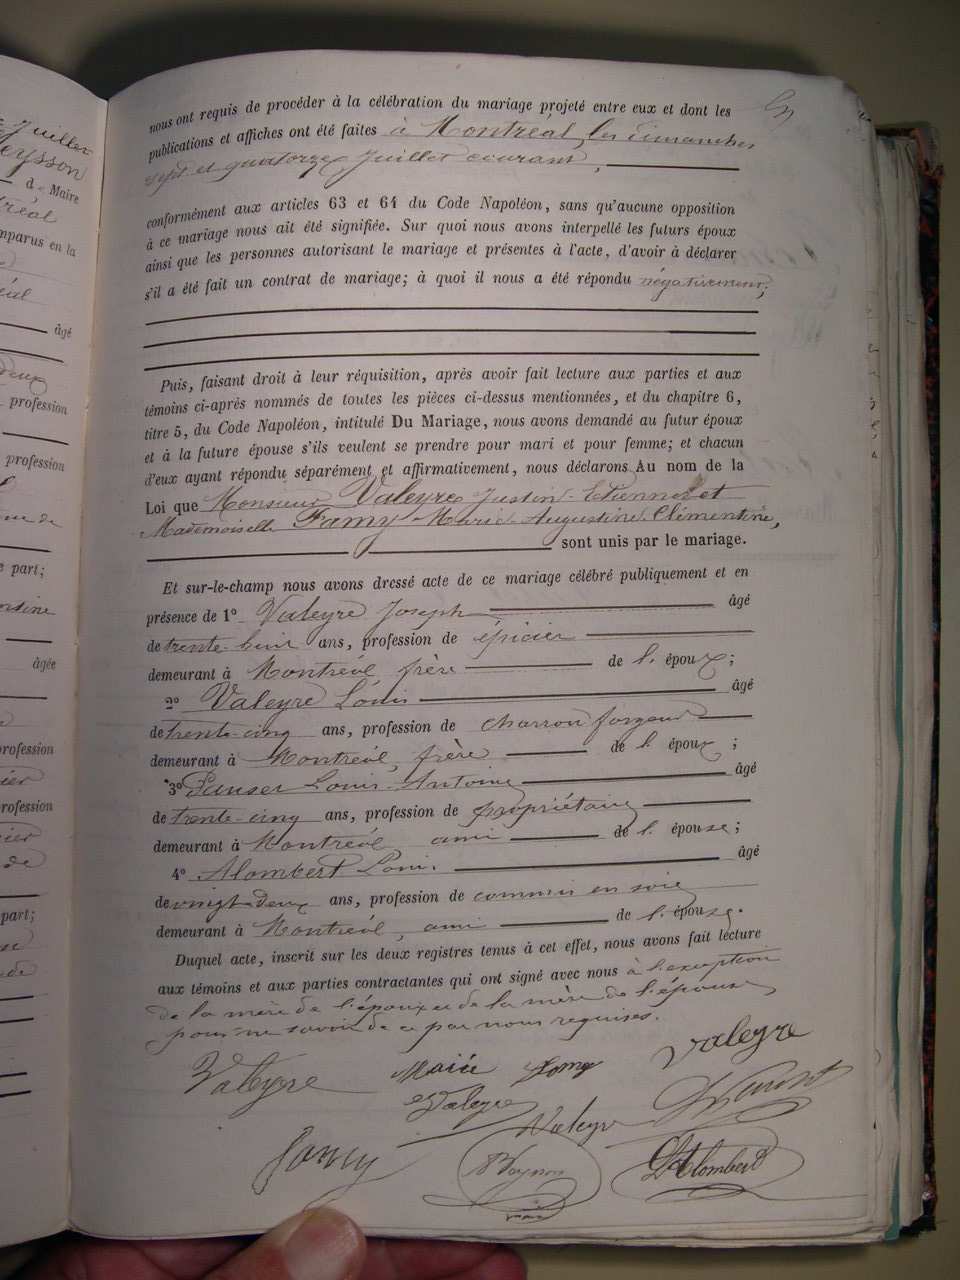 e Juillet
eysson
de Maire
tréal
mparus en la
éal
âgé
deux
profession
profession
e part;
entine
âgée
profession
ier
profession
ier
de
part;
nous ont requis de procéder à la célébration du mariage projeté entre eux et dont les
publications et affiches ont été faites à Montréal, les dimanches
sept et quatorze Juillet courant,
conformément aux articles 63 et 64 du Code Napoléon, sans qu'aucune opposition
à ce mariage nous ait été signifiée. Sur quoi nous avons interpellé les futurs époux
ainsi que les personnes autorisant le mariage et présentes à l'acte, d'avoir à déclarer
s'il a été fait un contrat de mariage; à quoi il nous a été répondu négativement;
Puis, faisant droit à leur réquisition, après avoir fait lecture aux parties et aux
témoins ci-après nommés de toutes les pièces ci-dessus mentionnées, et du chapitre 6,
titre 5, du Code Napoléon, intitulé Du Mariage, nous avons demandé au futur époux
et à la future épouse s'ils veulent se prendre pour mari et pour femme; et chacun
d'eux ayant répondu séparément et affirmativement, nous déclarons Au nom de la
Loi que Monsieur Valeyre Justin-Etienne et
Mademoiselle Famy Marie Augustine Clémentine,
sont unis par le mariage.
Et sur-le-champ nous avons dressé acte de ce mariage célébré publiquement et en
présence de 1º Valeyre Joseph âgé
de trente-huit ans, profession de épicier
demeurant à Montréal, frère de l'époux;
2º Valeyre Louis âgé
de trente-cinq ans, profession de charron forgeur
demeurant à Montréal, frère de l'époux;
3º Louis-Antoine âgé
de trente-cinq ans, profession de propriétaire
demeurant à Montréal, ami de l'épouse;
4º Alombert Louis âgé
de vingt-deux ans, profession de commis en soie
demeurant à Montréal, ami de l'épouse.
Duquel acte, inscrit sur les deux registres tenus à cet effet, nous avons fait lecture
aux témoins et aux parties contractantes qui ont signé avec nous à l'exception
de la mère de l'époux et de la mère de l'épouse
pour ne savoir de ce par nous requises.
Valeyre Marie Famy Valeyre
Valeyre Valeyre
Famy Alombert